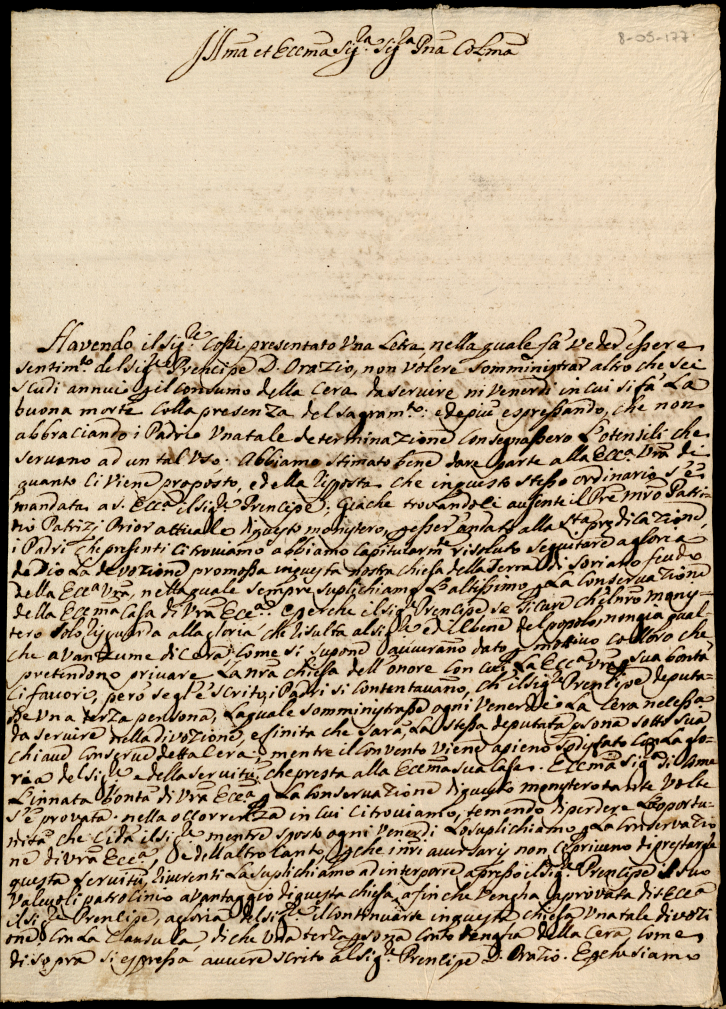 8-05-177
Ill.ma et Ecc.ma Sig.ra Sig.ra P.na Col.ma
Havendo il Sig.re Cossi presentato Una Letra, nella quale fa vedere essere
sentim.to del Sig.re Prencipe D. Orazio, non volere somministrar altro che sei
scudi annui p il consumo della Cera da servire ni Venerdi in cui si fà La
buona morte colla presenza del sagram.to: e de più espressando, che non
abbraciando i Padri Una tale determinazione consegnassero L'otensili che
servono ad un tal Uso. Abbiamo stimato bene dare parte alla Ecc.a V.ra di
quanto ci viene proposto, e della risposta che in questo stesso ordinario s'è
mandata a S. Ecc.a il Sig.re Prencipe: Giache trovandosi ausente il P.re M.ro Patri-
zio Patrizi Prior attuale di questo monystero, p esser andato alla S.ta predicazione,
i Padri che presenti ci troviamo abbiamo capitularm.te risoluto seguitare a gloria
de Dio La devozione promossa in questa nostra chiesa della Serra di Soriano feudo
della Ecc.a V.ra, nella quale sempre suplichiamo L'altissimo p La conservazione
della Ecc.ma Casa di V.ra Ecc.a e perche il Sig.re Prencipe se sicure ch'il n.ro mony-
tero solo riguarda alla gloria che risulta al Sig.re e il bene del popolo, non già qual
che avanzume di Cera, come si supone avveranno dato p mottivo colloro che
pretendono privare La n.ra chiesa dell'onore con cui La Ecc.a V.ra p sua bontà
ci favorì, però se gl'è scritto, i Padri si contentavano, ch'il Sig.re Prencipe deputa-
sse Una terza persona, La quale somministrasse ogni Venerdi La Cera necessa
da servire nella divozione, e finita che sarà, La stessa deputata p.sona sotto sua
chiave conserve detta Cera; mentre il convento viene apieno sodisfato con La glo-
ria del Sig.re e della servitù, che presta alla Ecc.ma sua Casa. Ecc.ma Sig.ra di come
L'innata bontà di V.ra Ecc.a p La conservazione di questo monystero tante volte
s'è provata. nella occorrenza in cui ci troviamo, temendo di perdere L'oportu-
nità che ci dà il Sig.re mentre sposto ogni Venerdi Lo suplichiamo p La conservazio
ne di V.ra Ecc.a, e dell'altro canto p che i n.ri aversarij non ci privino di prestarle
questa servitù, riverenti La suplichiamo ad interporre apresso il Sig.re Prencipe il suo
valevoli patrocinio a vantaggio di questa chiesa, afin che vengha aprovata di S. Ecc.a
il Sig.re Prencipe, a gloria del Sig.re il continuarse in questa chiesa Una tale divozi
one, con La Clausula, di che Una terza p.sona conto tengha della Cera come
di sopra si espressa avvere scrito al Sig.re Prencipe D. Orazio. E che siamo